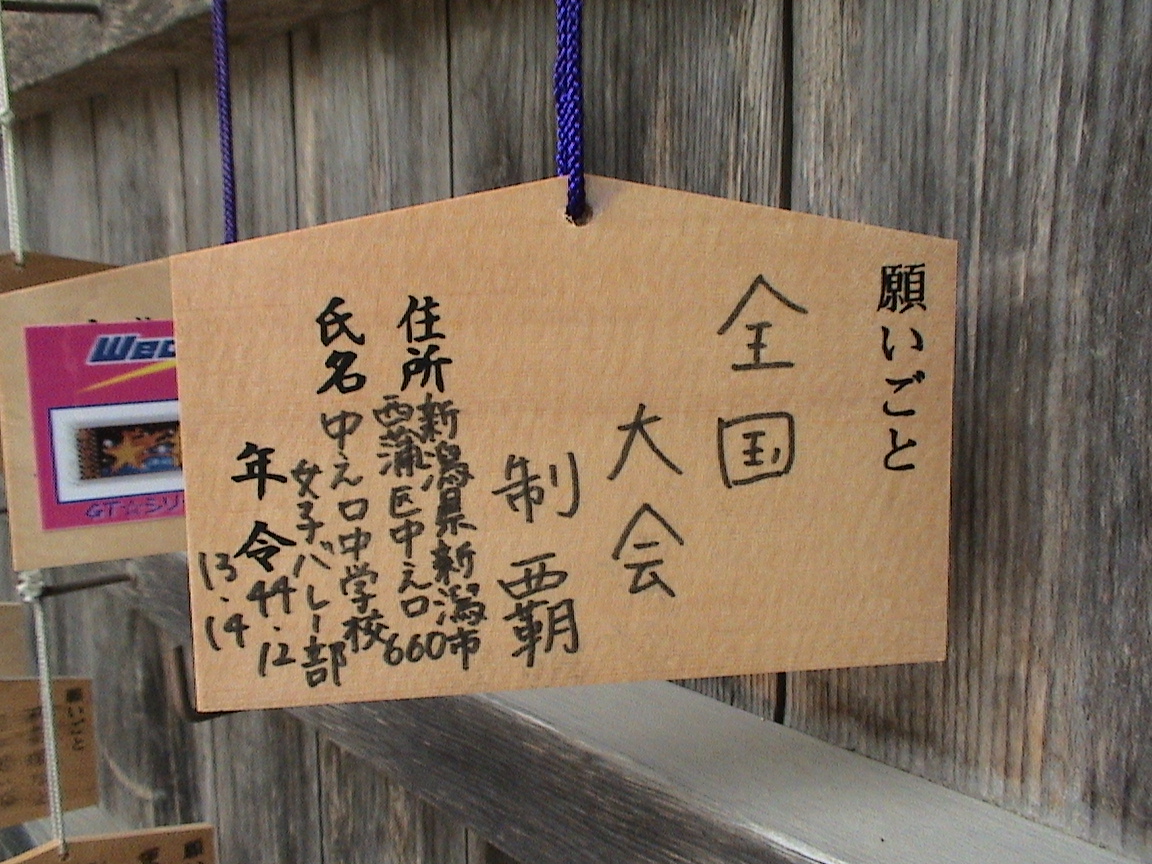 願いごと
全国
大会
制覇
住所 新潟県新潟市
西蒲区中之口660
氏名 中之口中学校
女子バレー部
年令 44・12
13・14
GT☆シリ
願いごと
願